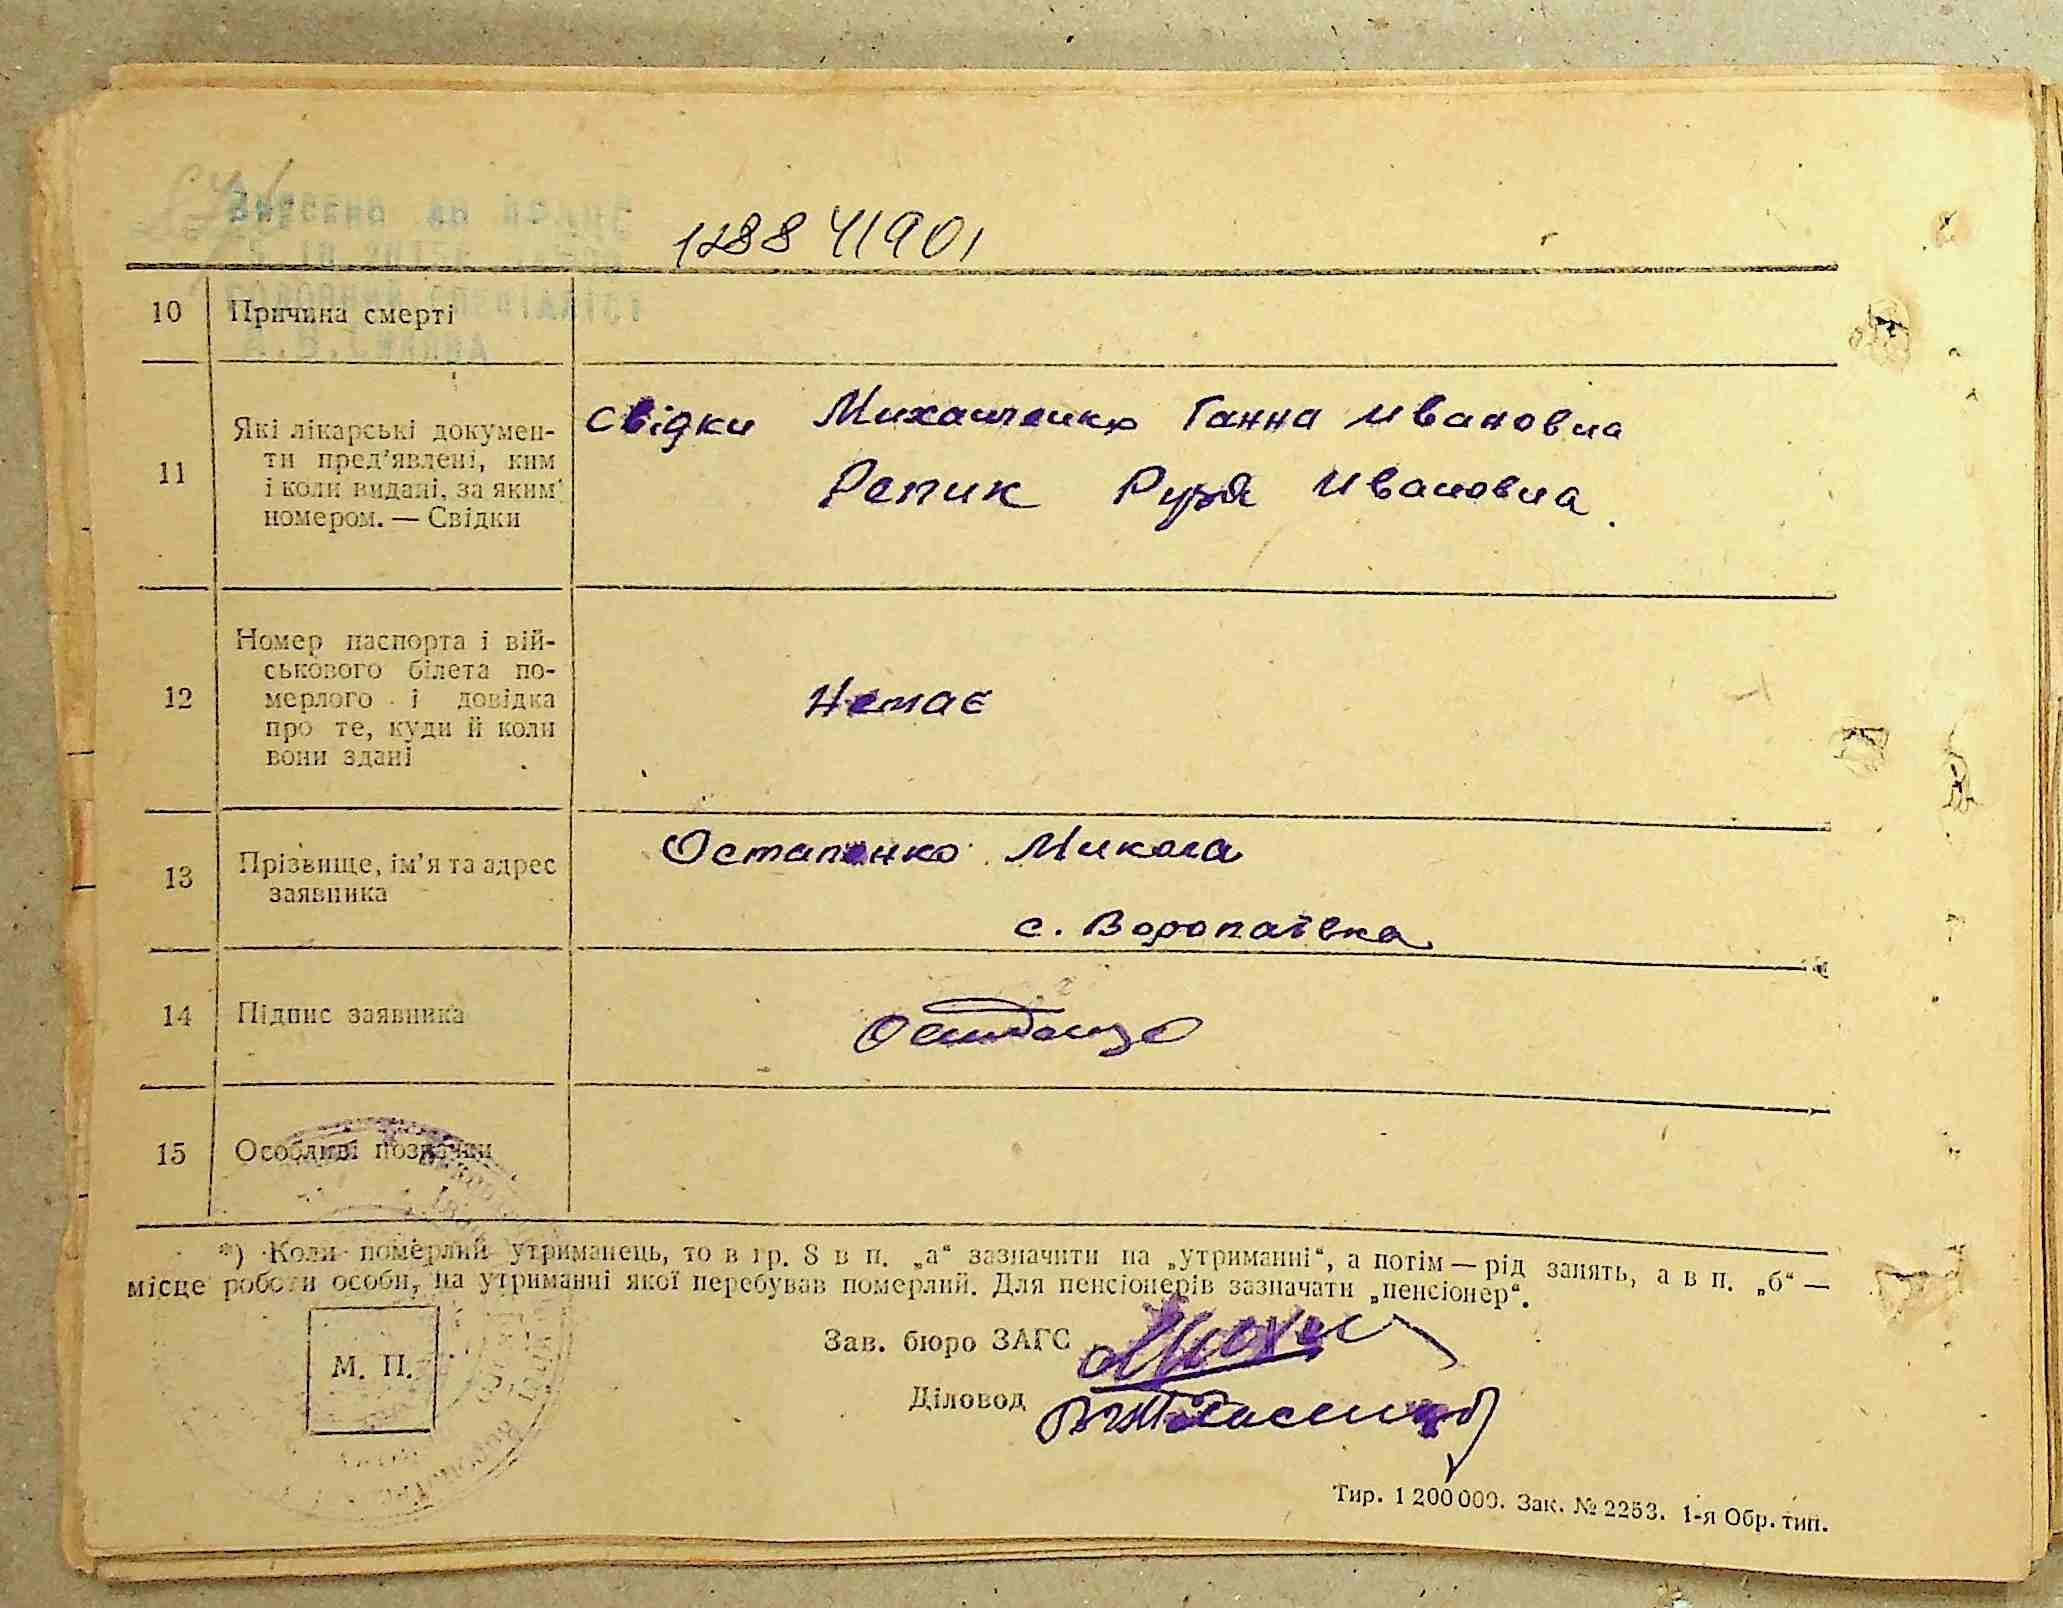 128841901
10 Причина смерті
11 Які лікарські докумен-
ти пред'явлені, ким
і коли видані, за яким
номером. — Свідки
Свідки Ганна Ивановна
Репик Ивановна
12 Номер паспорта і вій-
ськового білета по-
мерлого і довідка
про те, куди й коли
вони здані
Немає
13 Прізвище, ім'я та адрес
заявника
Остапенко Микола
с. Воропаївка
14 Підпис заявника
15 Особливі позначки
*) Коли померлий утриманець, то в гр. 8 в п. „а“ зазначити на „утриманні“, а потім — рід занять, а в п. „б“ —
місце роботи особи, на утриманні якої перебував померлий. Для пенсіонерів зазначати „пенсіонер“.
М. П.
Зав. бюро ЗАГС
Діловод
Тир. 1 200 000. Зак. № 2253. 1-я Обр. тип.